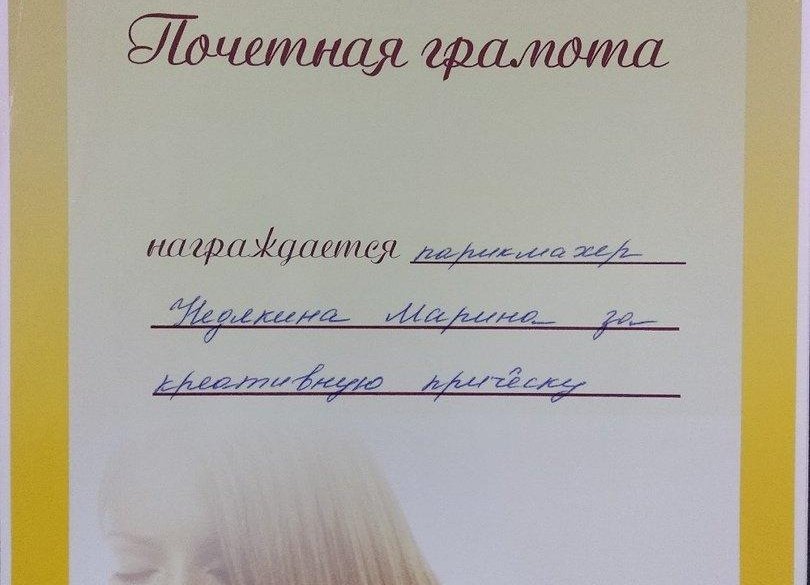 Почетная грамота
награждается парикмахер
Недякина Марина за
креативную причёску